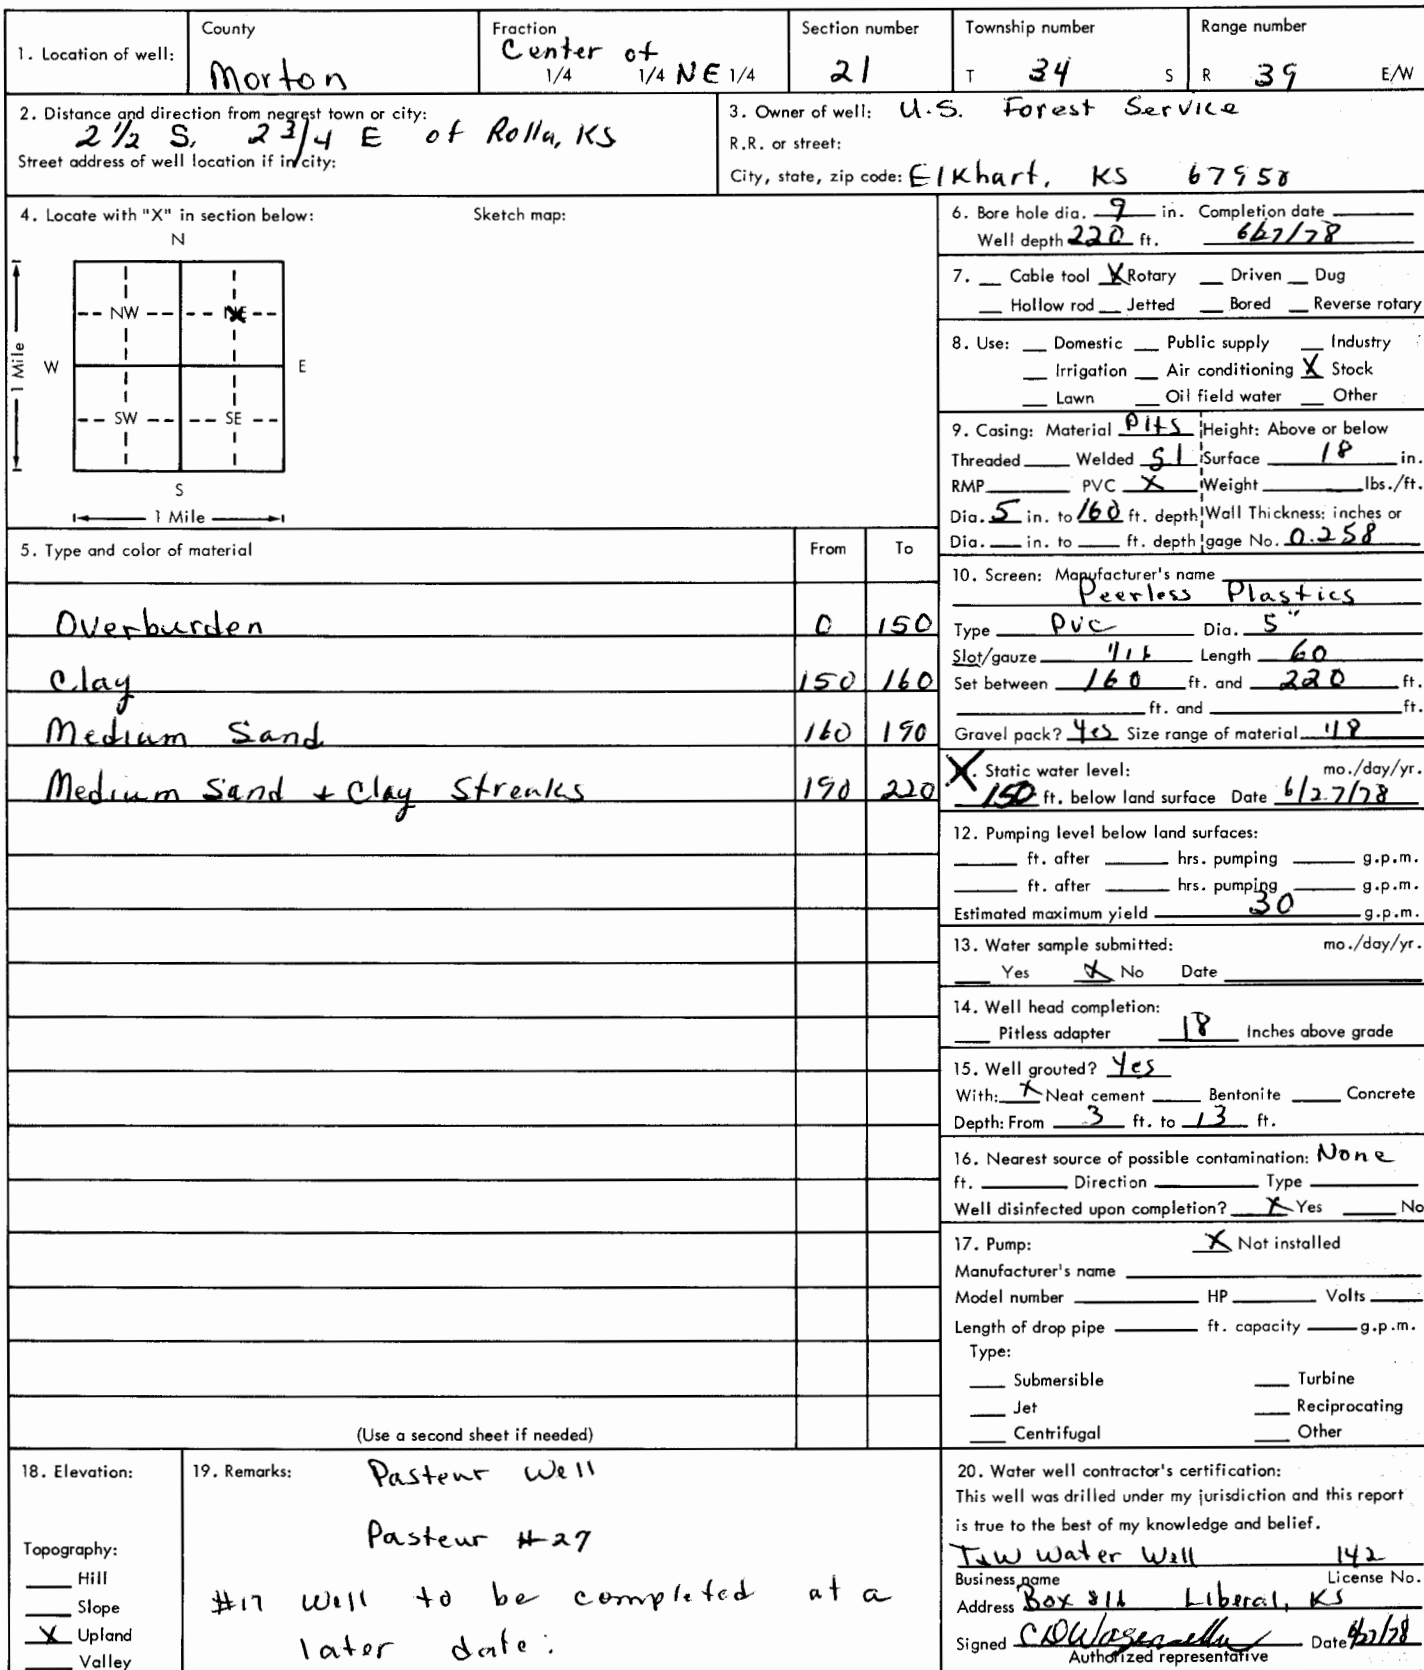 1. Location of well:
County
Morton
Fraction
Center of
1/4 1/4 NE 1/4
Section number
21
Township number
T 34 S
Range number
R 39 E/W
2. Distance and direction from nearest town or city:
2 1/2 S. 2 3/4 E of Rolla, KS
Street address of well location if in city:
3. Owner of well: U.S. Forest Service
R.R. or street:
City, state, zip code: Elkhart, KS 67950
4. Locate with "X" in section below:
Sketch map:
N
NW
NE
1 Mile
W
E
SW
SE
S
1 Mile
5. Type and color of material From To
Overburden 0 150
Clay 150 160
Medium Sand 160 190
Medium Sand + Clay Streaks 190 220
(Use a second sheet if needed)
6. Bore hole dia. 9 in. Completion date
Well depth 220 ft. 6/27/78
7. Cable tool X Rotary Driven Dug
Hollow rod Jetted Bored Reverse rotary
8. Use: Domestic Public supply Industry
Irrigation Air conditioning X Stock
Lawn Oil field water Other
9. Casing: Material Height: Above or below
Threaded Welded Surface 18 in.
RMP PVC X Weight lbs./ft.
Dia. 5 in. to 160 ft. depth Wall Thickness: inches or
Dia. in. to ft. depth gage No. 0.258
10. Screen: Manufacturer's name
Peerless Plastics
Type PVC Dia. 5"
Slot/gauze Length 60
Set between 160 ft. and 220 ft.
ft. and ft.
Gravel pack? Yes Size range of material
X. Static water level: mo./day/yr.
150 ft. below land surface Date 6/27/78
12. Pumping level below land surfaces:
ft. after hrs. pumping g.p.m.
ft. after hrs. pumping g.p.m.
Estimated maximum yield 30 g.p.m.
13. Water sample submitted: mo./day/yr.
Yes X No Date
14. Well head completion:
Pitless adapter 18 Inches above grade
15. Well grouted? Yes
With: X Neat cement Bentonite Concrete
Depth: From 3 ft. to 13 ft.
16. Nearest source of possible contamination: None
ft. Direction Type
Well disinfected upon completion? X Yes No
17. Pump: X Not installed
Manufacturer's name
Model number HP Volts
Length of drop pipe ft. capacity g.p.m.
Type:
Submersible Turbine
Jet Reciprocating
Centrifugal Other
18. Elevation:
Topography:
Hill
Slope
X Upland
Valley
19. Remarks: Pasteur Well
Pasteur #27
#17 Well to be completed at a
later date.
20. Water well contractor's certification:
This well was drilled under my jurisdiction and this report
is true to the best of my knowledge and belief.
T&W Water Well 142
Business name License No.
Address Box Liberal, KS
Signed Date 6/27/78
Authorized representative